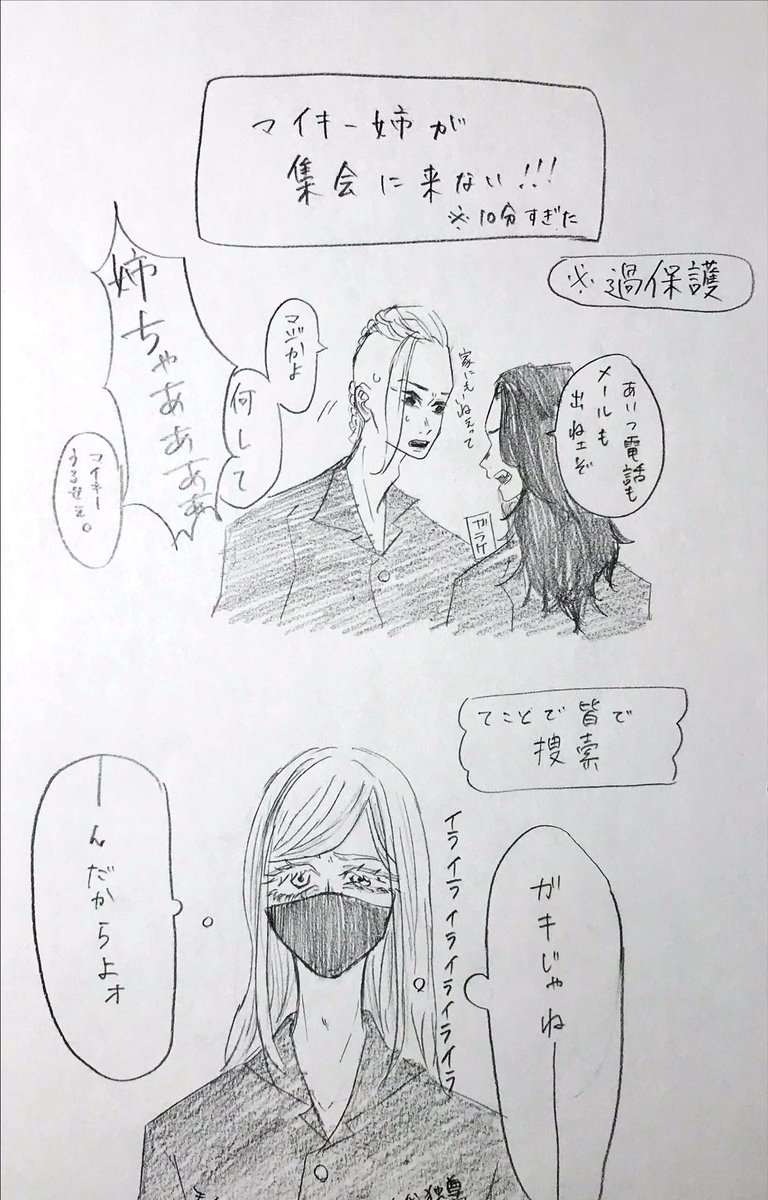 マイキー姉が
集会に来ない!!!
※10分すぎた
※過保護
あいつ電話も
メールも
出ねェぞ
家にもいねぇって
ガラケー
マジかよ
何して
姉ちゃあああああ
マイキー
うるせぇ。
てことで皆で
捜索
ガキじゃねー
イライライライライライラ
ーんだからよォ